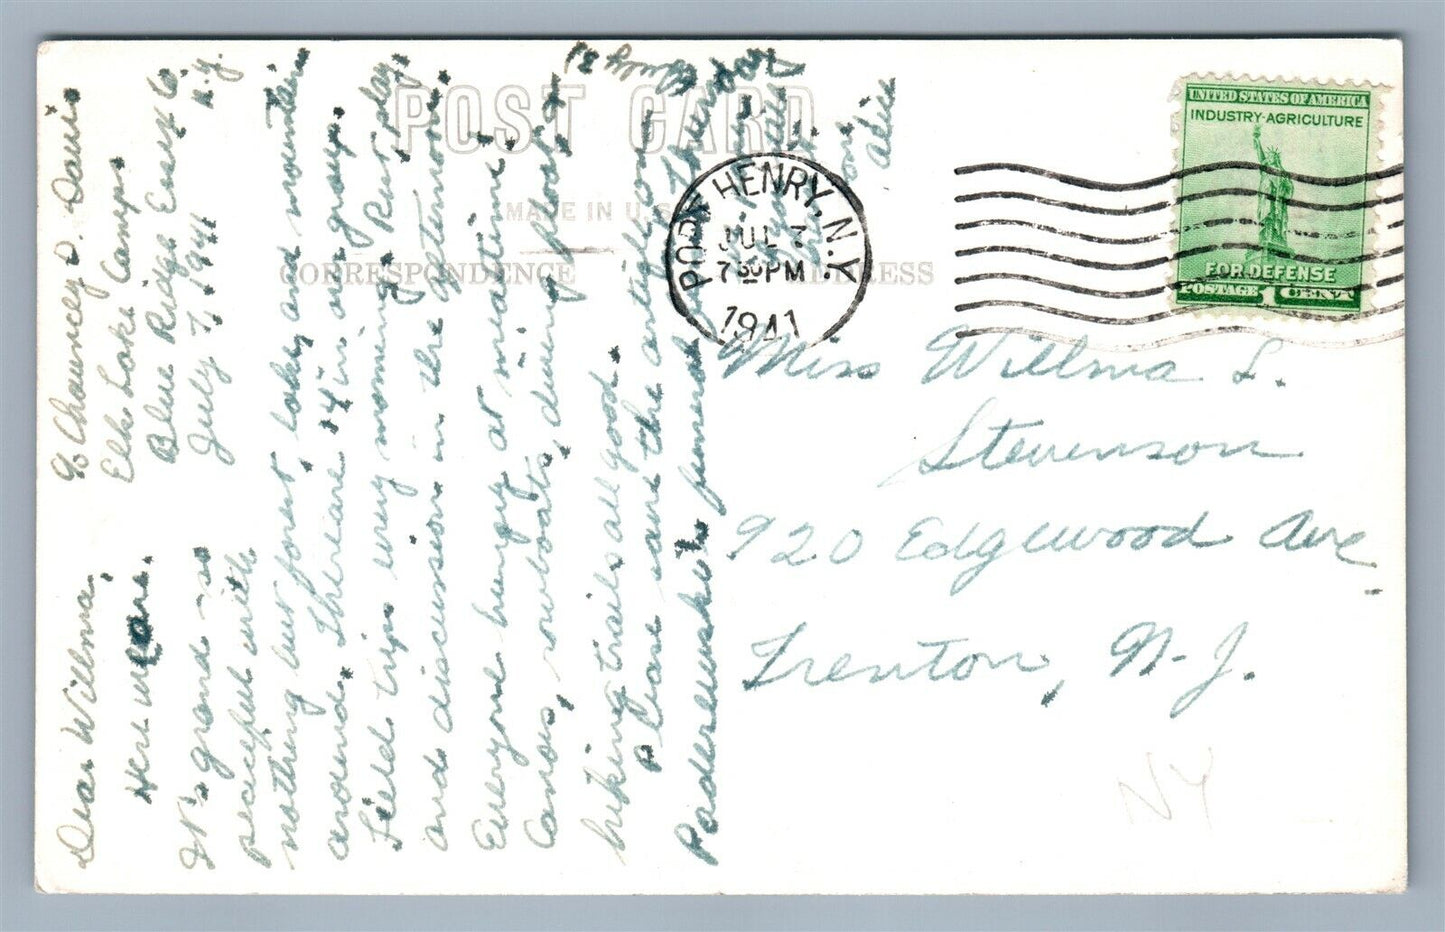 POST CARD
MADE IN U.S.
CORRESPONDENCE
ADDRESS
UNITED STATES OF AMERICA
INDUSTRY-AGRICULTURE
FOR DEFENSE
POSTAGE 1 CENT
PORT HENRY, N.Y.
JUL 7
7 30 PM
1941
Miss Wilma L.
Stevenson
920 Edgewood Ave.
Trenton, N.J.
NY
% Chauncey D. Davis
Elk Lake Camps
Blue Ridge Essex Co.
N.Y.
July 7, 1941
Dear Wilma,
Here we are.
It's grand - so
peaceful with
nothing but forest, lake, and mountain
around. There are 14 in our group.
Field trips every morning. Rest, play,
and discussion in the afternoon.
Everyone hungry at mealtime!
Canoes, rowboats, diving float &
hiking trails all good.
Please save the article on
Paderewski's funeral
Alice